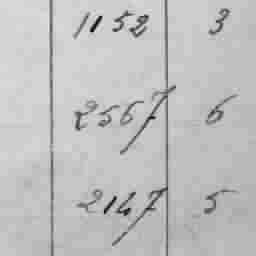 1152 3
2567 6
2147 5